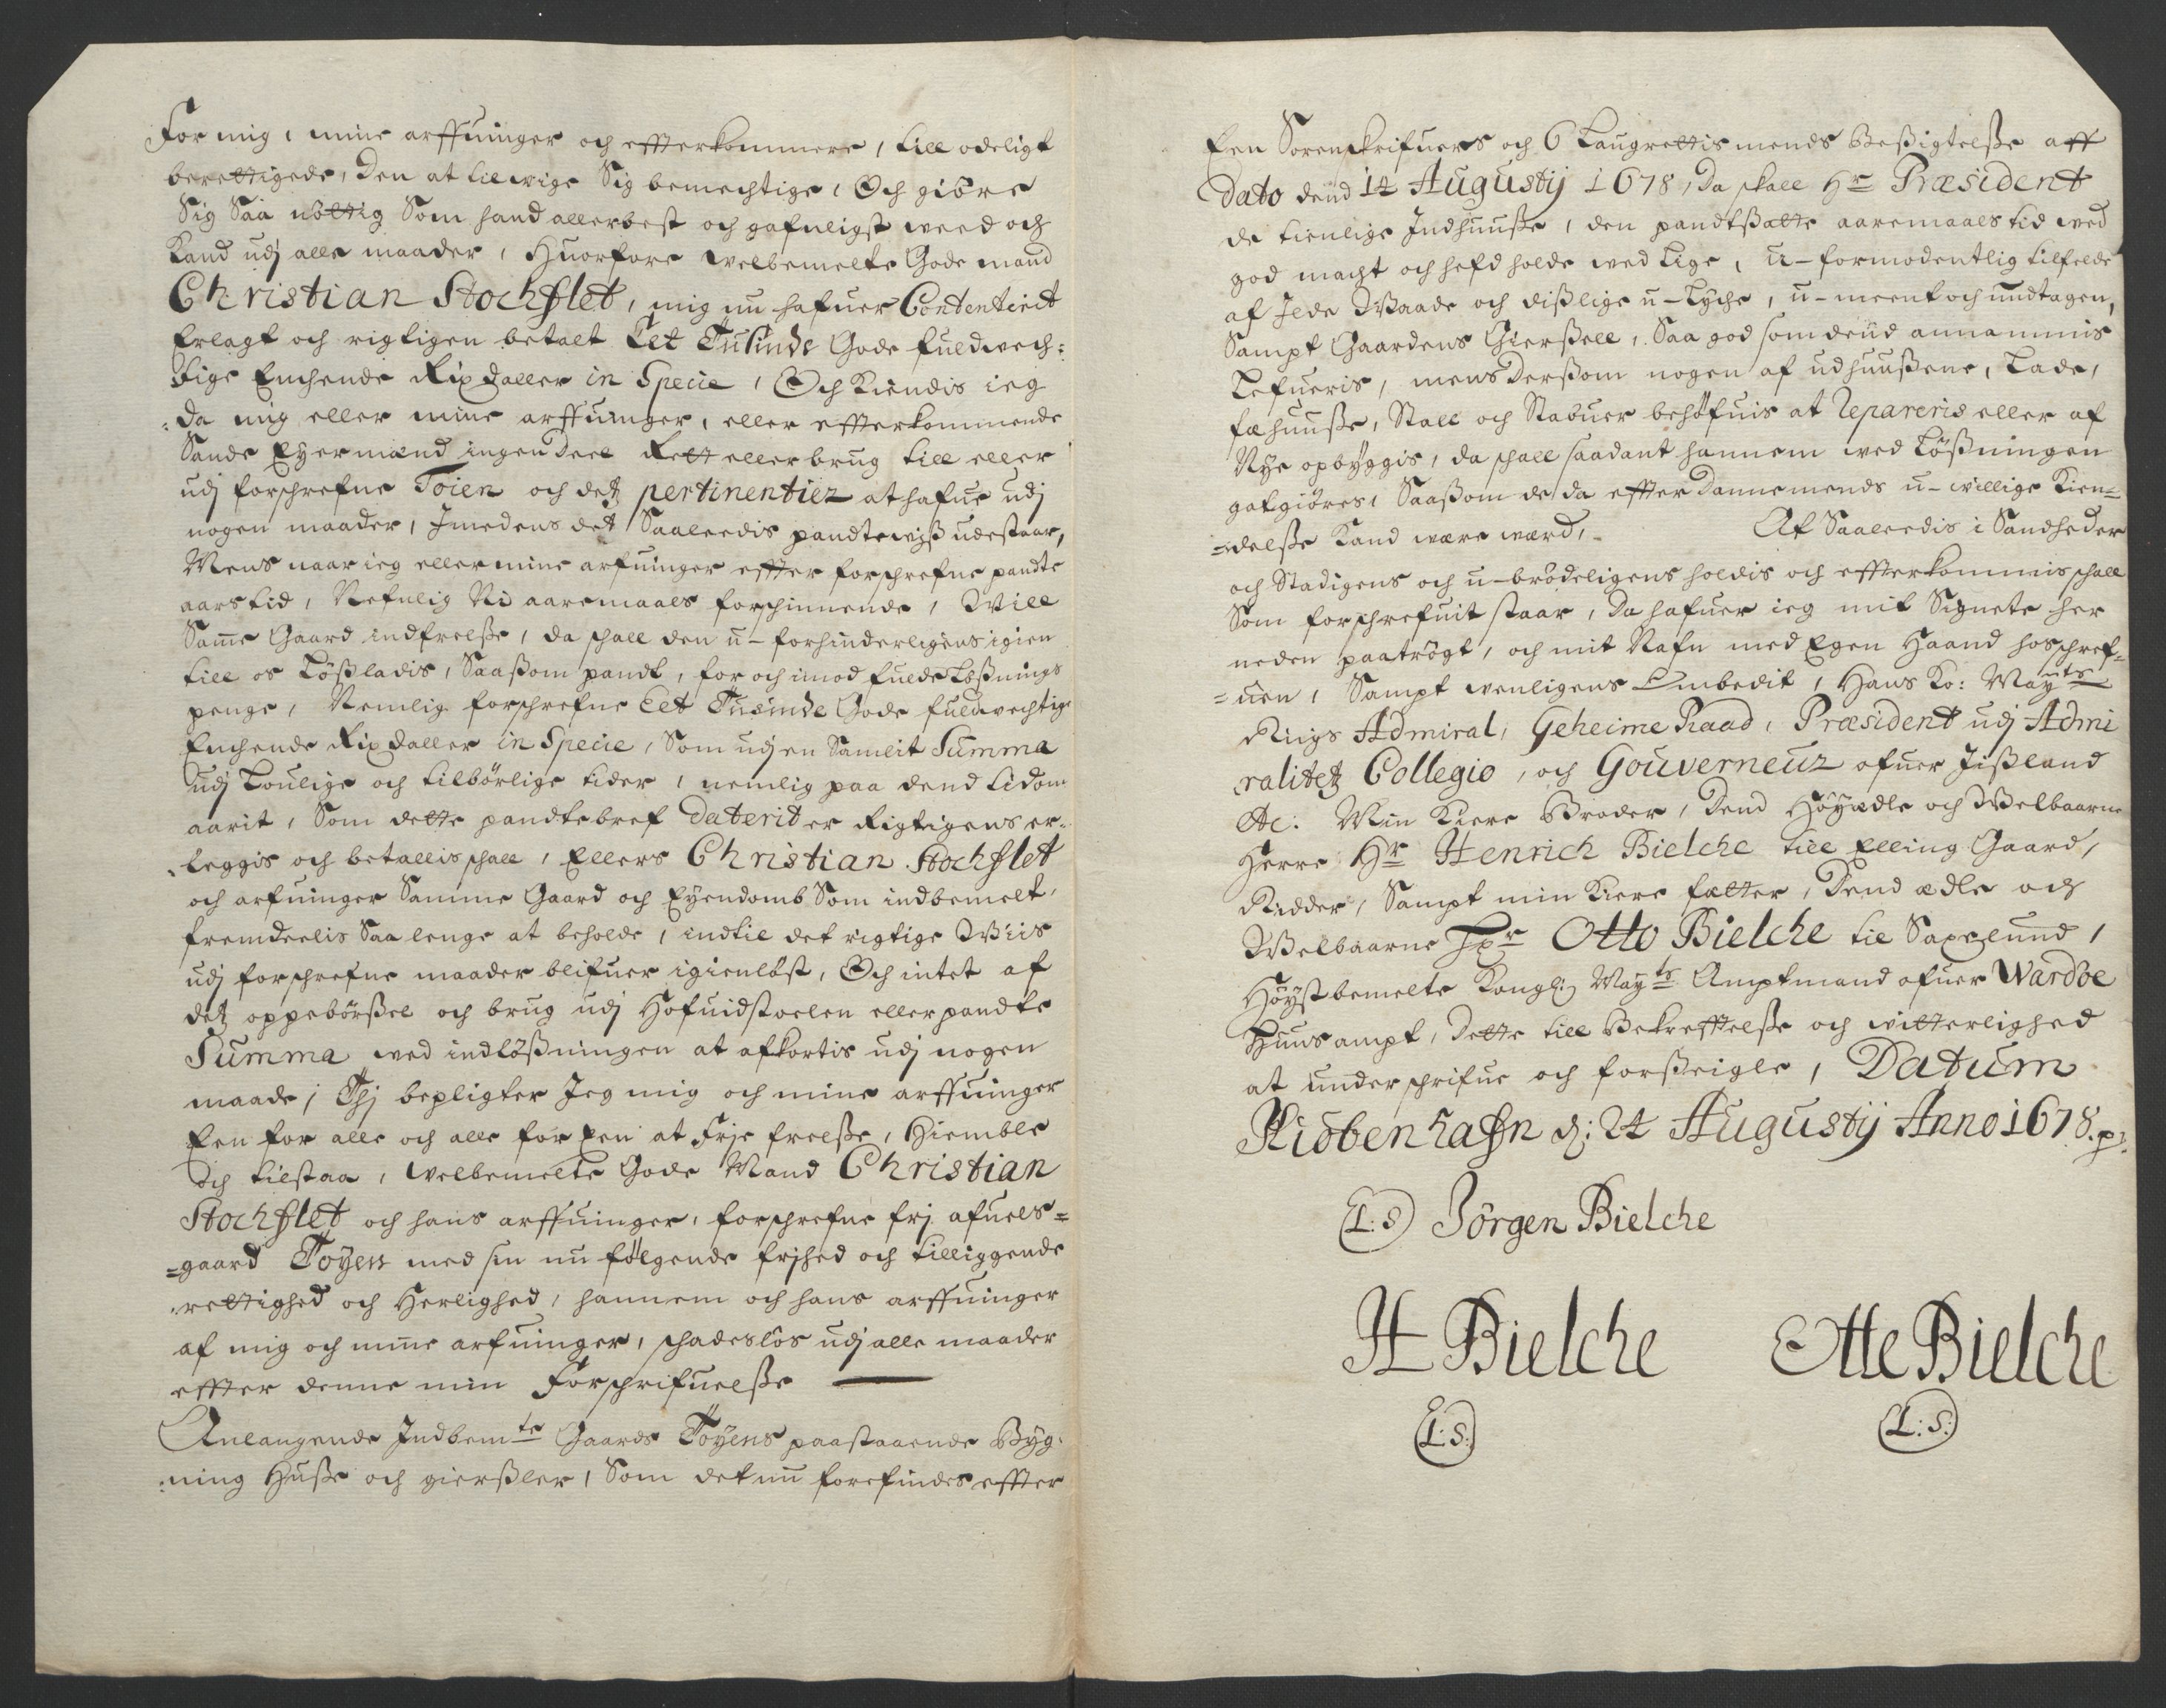 For mig, mine arffuinger och effterkommere, till odeligt
berettigede, Den at tilevige Sig bemechtige, Och giöre
Sig Saa nöttig Som hand allerbest och gafnligst weed och
Kand udj alle maader, Huorfore Welbemelte Gode mand
Christian Stochflet, mig nu hafuer Contenterit
Erlagt och rigtigen betalt Eet Tusinde Gode fuldwech:
:tige Enchende Rixdaller in Specie, Och Kiendis ieg
:da mig eller mine arffuinger, eller effterkommende
Sande Eyermænd ingen Deel Rett eller brug till eller
udj forschrefne Toien och detz pertinentier at hafue udj
nogen maader, Imedens det Saaleedis pandtewiss udestaar,
Mens naar ieg eller mine arfuinger effter forschrefne pandte
aars tid, Nefnlig Ni aaremaals forschinnende, Will
Samme Gaard indfrelsse, da schall den u-forhinderligens igien
till os Lössladis, Saassom pandt, for och imod fulde Løssnings
penge, Nemlig forschrefne Eet Tusinde Gode fuldwechtige
Enchende Rixdaller in Specie, Som udj en Samlit Summa
udj Loulige och tilbörlige tider, nemlig paa dend tid om
aarit, Som dette pandtebref Daterit er Rigtigens er:
:leggis och betallis schall, Ellers Christian Stochflet
och arfuinger Samme Gaard och Eyendomb Som indbemelt,
fremdeelis Saa lenge at beholde, indtil det rigtige Wiis
udj forschrefne maader blifuer igienlöst, Och intet af
detz oppebörssel och brug udj Hofuidstoelen eller pandte
Summa wed indlössningen at afkortis udj nogen
maade, Thj bepligter Jeg mig och mine arffuinger
Een for alle och alle for Een at Frje frelsse, Hiemble
och tilstaa, Welbemelte Gode Mand Christian
Stochflet och hans arffuinger, forschrefne frj afuels=
=gaard Toyen med sin nu fölgende frjhed och tilliggende
rettighed och Herlighed, hannem och hans arffuinger
af mig och mine arfuinger, schadeslös udj alle maader
effter denne min Forschrifuelsse
Anlangende Indbemte Gaards Töyens paastaaende Byg:
:ning Husse och gierssler, Som det nu forefindes effter
Een Sorenskrifuers och 6 Laugrettismends Bessigtelsse aff
Dato dend 14 Augustij 1678, Da skall Hr Præsident
de tienlige Indhuusse, den pandtssatte aaremaals tid wed
god macht och hefd holde wed Lige, u-formodentlig tilfelde
af Ilde Waade och disslige u-lyche, u-meent och undtagen,
Sampt Gaardens Gierssell, Saa god som dend annammis
Lefueris, mens Derssom nogen af udhuussene, Lade,
fæhuusse, Stall och Stabuer behöfuis at Repareris eller af
Nye opbyggis, da schall saadant hannem wed Lössningen
gotgiöres, Saassom de da effter Dannemends u-willige Kien=
=delsse Kand were werd, - At Saaleedis i Sandheder
och Stadigens och u-brödeligens holdis och effterkommis schall
Som forschrefuit staar, Da hafuer ieg mit Signete her
neden paatrögt, och mit Nafn med Egen Haand hosschref=
=uen, Sampt wenligens Ombedit, Hans Ko: Mayts
Riigs Admiral, Geheime Raad, Præsident udj Admi
ralitetz Collegio, och Gouverneur ofuer Jissland
etc: Min Kiere Broder, Dend Höyædle och Welbaarne
Herre Hr Henrich Bielche till Elling Gaard,
Ridder, Sampt min Kiere fætter, Dend ædle och
Welbaarne Hr Otto Bielche til Saxelund,
Höystbemelte Kongl: Mayts Amptmand ofuer Wardöe
Huus ampt, Dette till Bekrefftelsse och witterlighed
at underschrifue och forsseigle, Datum
Kiöbenhafn d: 24 Augustij Anno 1678.
(L:S) Jörgen Bielche
H Bielche Otte Bielche
(L:S:) (L:S:)